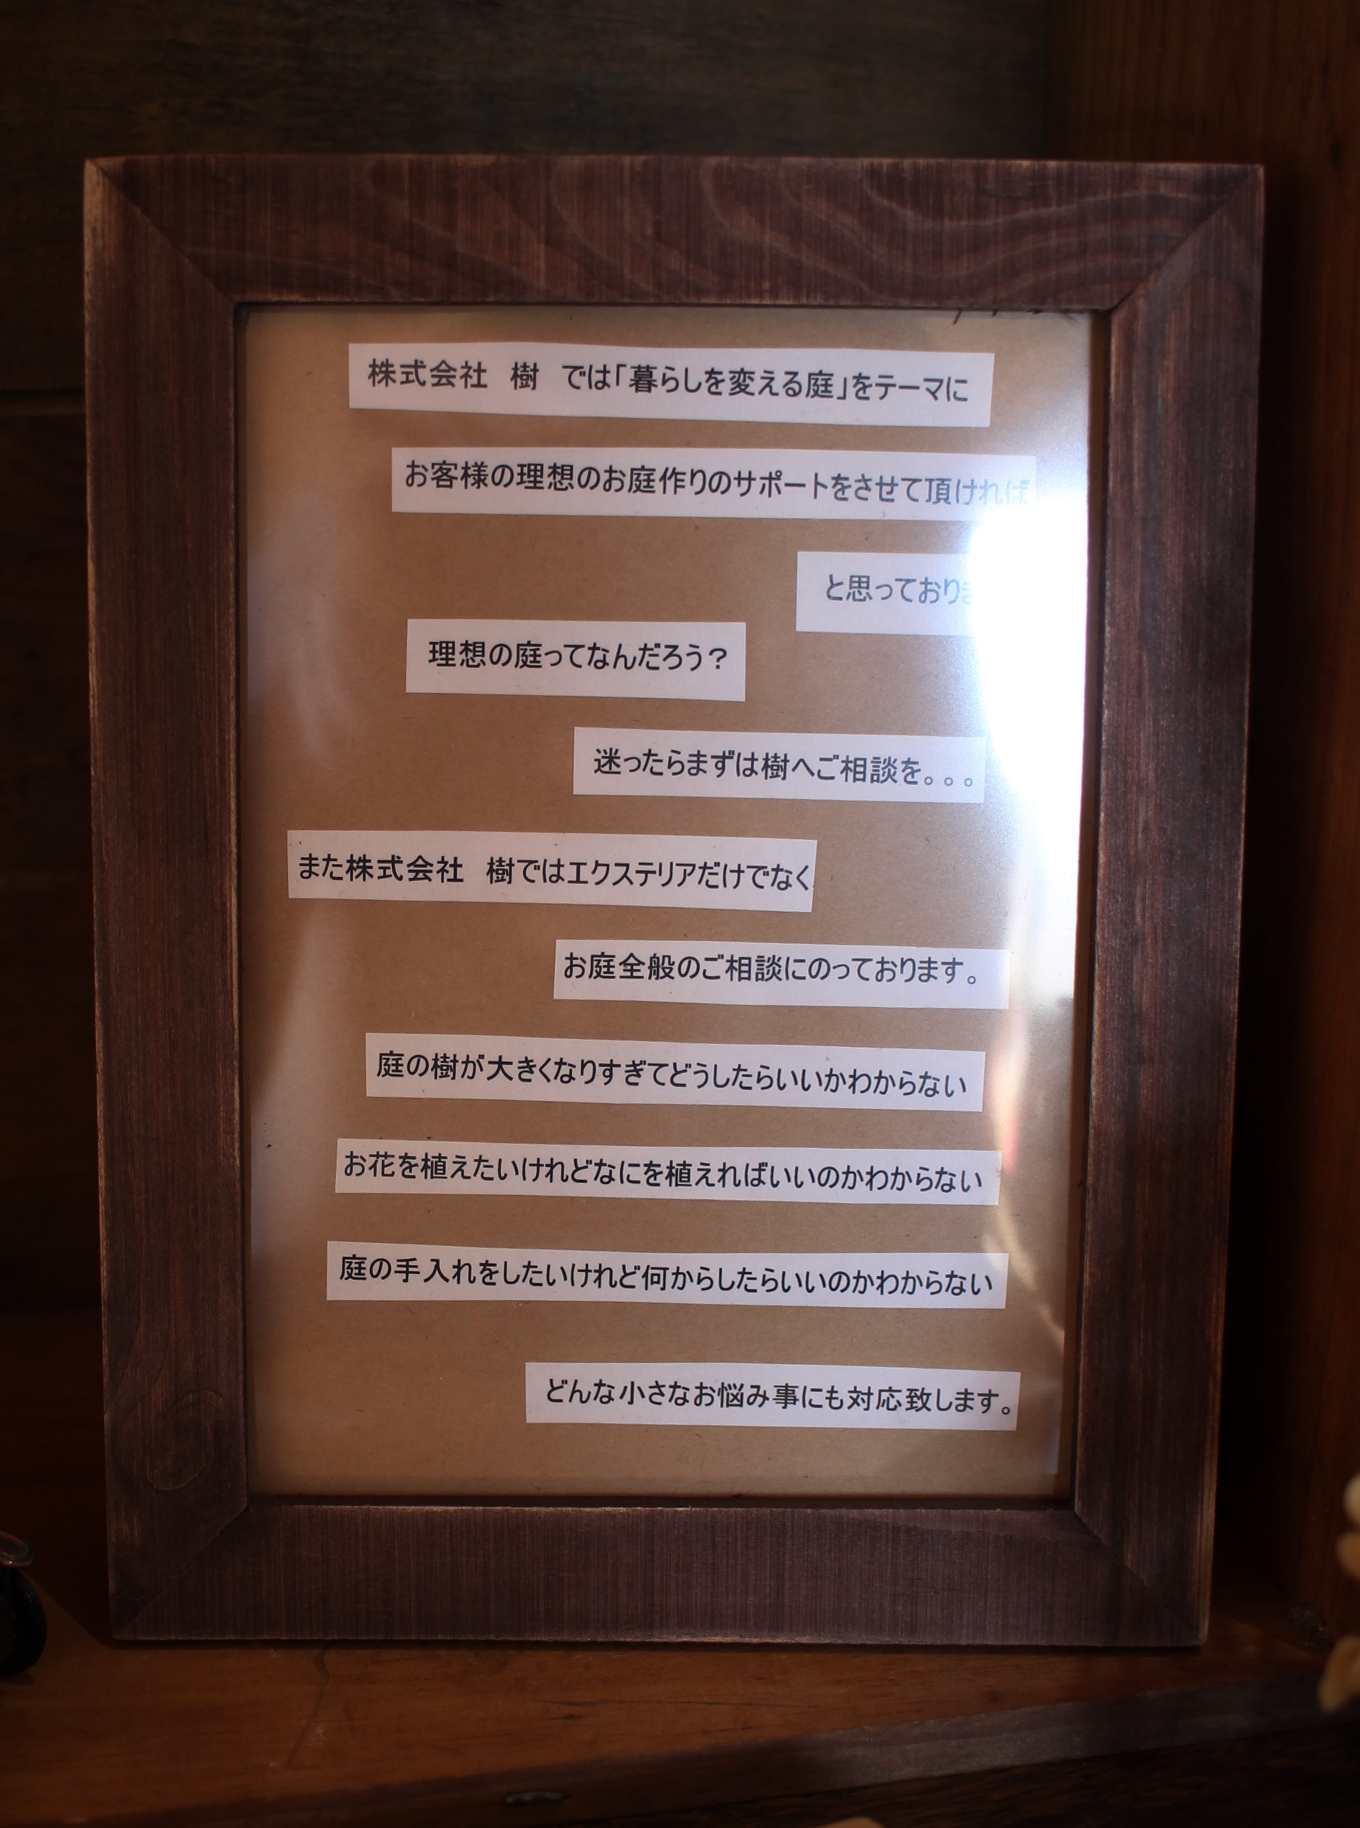 株式会社　樹　では「暮らしを変える庭」をテーマに
お客様の理想のお庭作りのサポートをさせて頂ければ
と思っており
理想の庭ってなんだろう？
迷ったらまずは樹へご相談を。。。
また株式会社　樹ではエクステリアだけでなく
お庭全般のご相談にのっております。
庭の樹が大きくなりすぎてどうしたらいいかわからない
お花を植えたいけれどなにを植えればいいのかわからない
庭の手入れをしたいけれど何からしたらいいのかわからない
どんな小さなお悩み事にも対応致します。